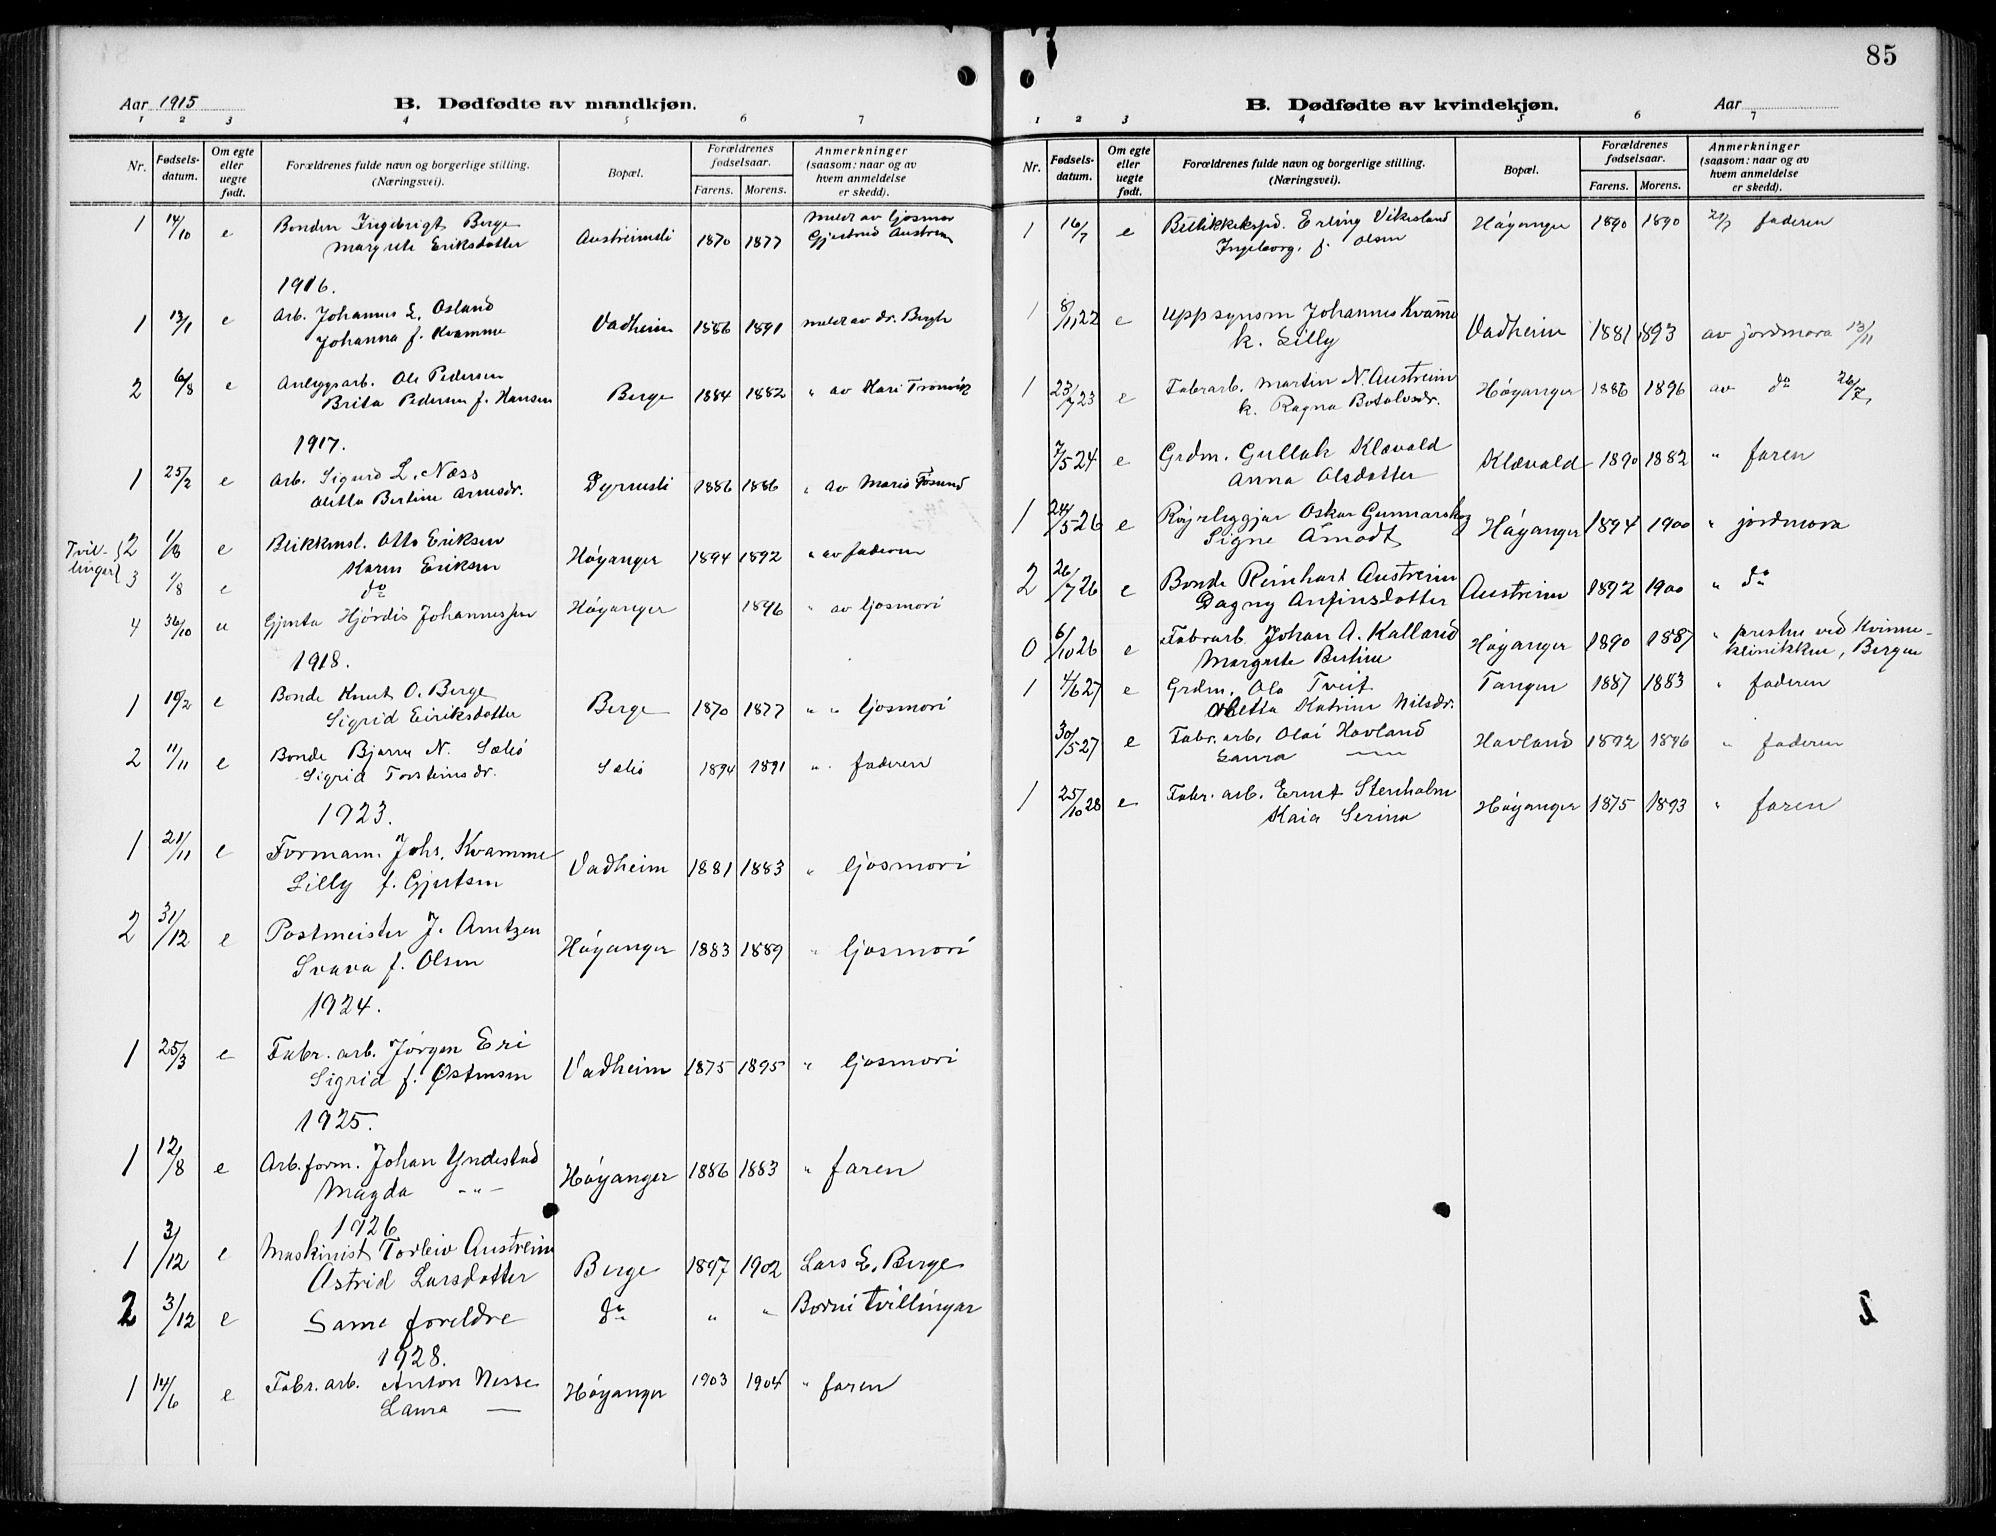 Aar 1915
B. Dødfødte av mandkjøn.
1 2 3 4 5 6 7
Nr. Fødsels-datum. Om egte eller uegte født. Forældrenes fulde navn og borgerlige stilling. (Næringsvei). Bopæl. Forældrenes fødselsaar. Farens. Morens. Anmerkninger (saasom: naar og av hvem anmeldelse er skedd).
1 14/10 e Bonden Ingebrigt Berge
Margrete Eriksdotter Austreimsli 1870 1877 meldt av ljosmor
Gjertrud Austreim
1916.
1 13/1 e Arb. Johannes L. Osland
Johanna f. Kvamme Vadheim 1886 1891 meldt av dr. Bergh
2 6/8 e Anlegsarb. Ole Pedersen
Brita Pedersen f. Hansen Berge 1884 1882 " av Kari Tronvik
1917.
1 25/2 e Arb. Sigurd L. Næss
Bertine Arnesdr. 1886 1886 " av Marie
Tvil-lingar 2 1/8 e Blikkensl. Otto Eriksen
Karen Eriksen Høyanger 1894 1892 " av faderen
3 1/8 e do
4 30/10 u Gjenta Hjørdis Johannessen Høyanger 1896 " av ljosmori
1918.
1 10/2 e Bonde Knut O. Berge
Sigrid Eiriksdotter Berge 1870 1877 " " ljosmori
2 11/11 e Bonde Bjarne N. Sælø
Sigrid Torsteinsdr. Sælø 1894 1891 " faderen
1923.
1 21/11 e Formann Johs. Kvamme
Lilly f. Gjertsen Vadheim 1881 1883 " ljosmori
2 31/12 e Postmeister J. Arntzen
Svava f. Olsen Høyanger 1883 1889 " ljosmori
1924.
1 25/3 e Fabr. arb. Jørgen Eri
Sigrid f. Østensen Vadheim 1875 1895 " ljosmori
1925.
1 12/8 e Arb.form. Johan Yndestad
Magda -"- Høyanger 1886 1883 " faren
1926
1 3/12 e Maskinist Torleiv Austreim
Astrid Larsdotter Berge 1897 1902 Lars E. Berge
2 3/12 e Same foreldre do " " Borni tvillingar
1928.
1 14/6 e Fabr. arb. Anton Nesse
Laura — Høyanger 1903 1904 " faren
85
B. Dødfødte av kvindekjøn.
Aar
1 2 3 4 5 6 7
Nr. Fødsels-datum. Om egte eller uegte født. Forældrenes fulde navn og borgerlige stilling. (Næringsvei). Bopæl. Forældrenes fødselsaar. Farens. Morens. Anmerkninger (saasom: naar og av hvem anmeldelse er skedd).
1 16/7 e Erling Vikesland
Ingeborg, f. Olsen Høyanger 1890 1890 faderen
1 8/11 22 e Uppsynsm Johannes Kvamme
k. Lilly Vadheim 1881 1893 av jordmora 13/11
1 23/7 23 e Fabrarb. Martin N. Austreim
k. Ragna Botolvsdr. Høyanger 1886 1896 av do 26/7
7/5 24 e Grdm. Gullak Klævold
Anna Olsdotter Klævold 1890 1882 " faren
1 24/5 26 e Røyrleggjar Oskar Gunnarskog
Signe Åmodt Høyanger 1894 1900 " jordmora
2 26/7 26 e Bonde Reinhart Austreim
Dagny Anfinsdotter Austreim 1892 1900 " do
0 6/10 26 e Fabrarb Johan A. Kalland
Margrete Bertine Høyanger 1890 1887 " presten ved Kvinne-
klinikken, Bergen
1 4/6 27 e Grdm. Ola Tveit
Katrine Nilsdr. Tangen 1887 1883 " faderen
30/5 27 e Fabr. arb. Olai Hovland
Laura — Hovland 1892 1896 " faderen
1 25/10 28 e Fabr. arb. Ernst Stenholm
Kaia Serina Høyanger 1875 1893 " faren